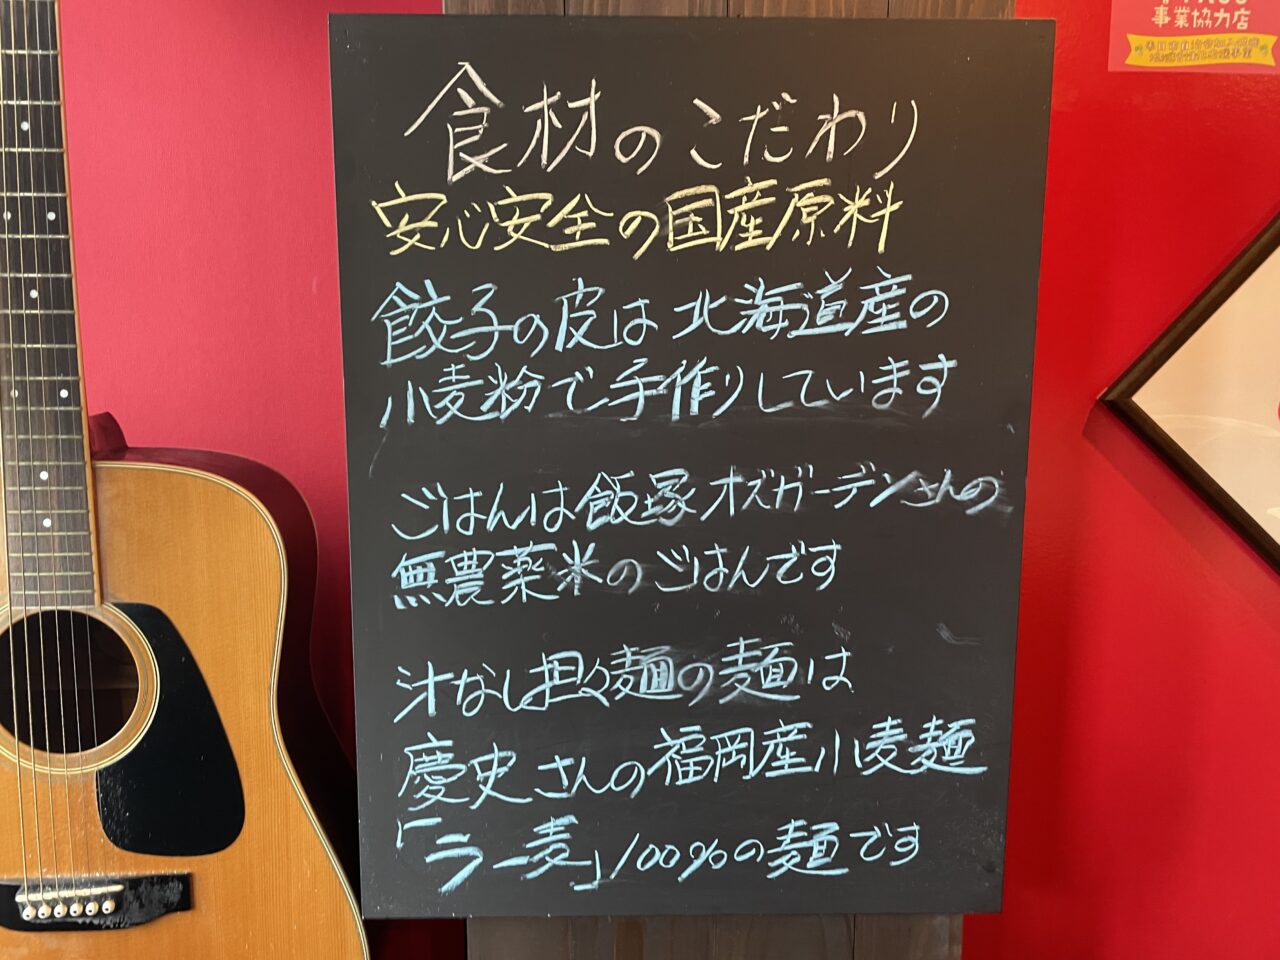 事業協力店
食材のこだわり
安心安全の国産原料
餃子の皮は北海道産の
小麦粉で手作りしています
ごはんは飯塚オズガーデンさんの
無農薬米のごはんです
汁なし担々麺の麺は
慶史さんの福岡産小麦麺
「ラー麦」100%の麺です